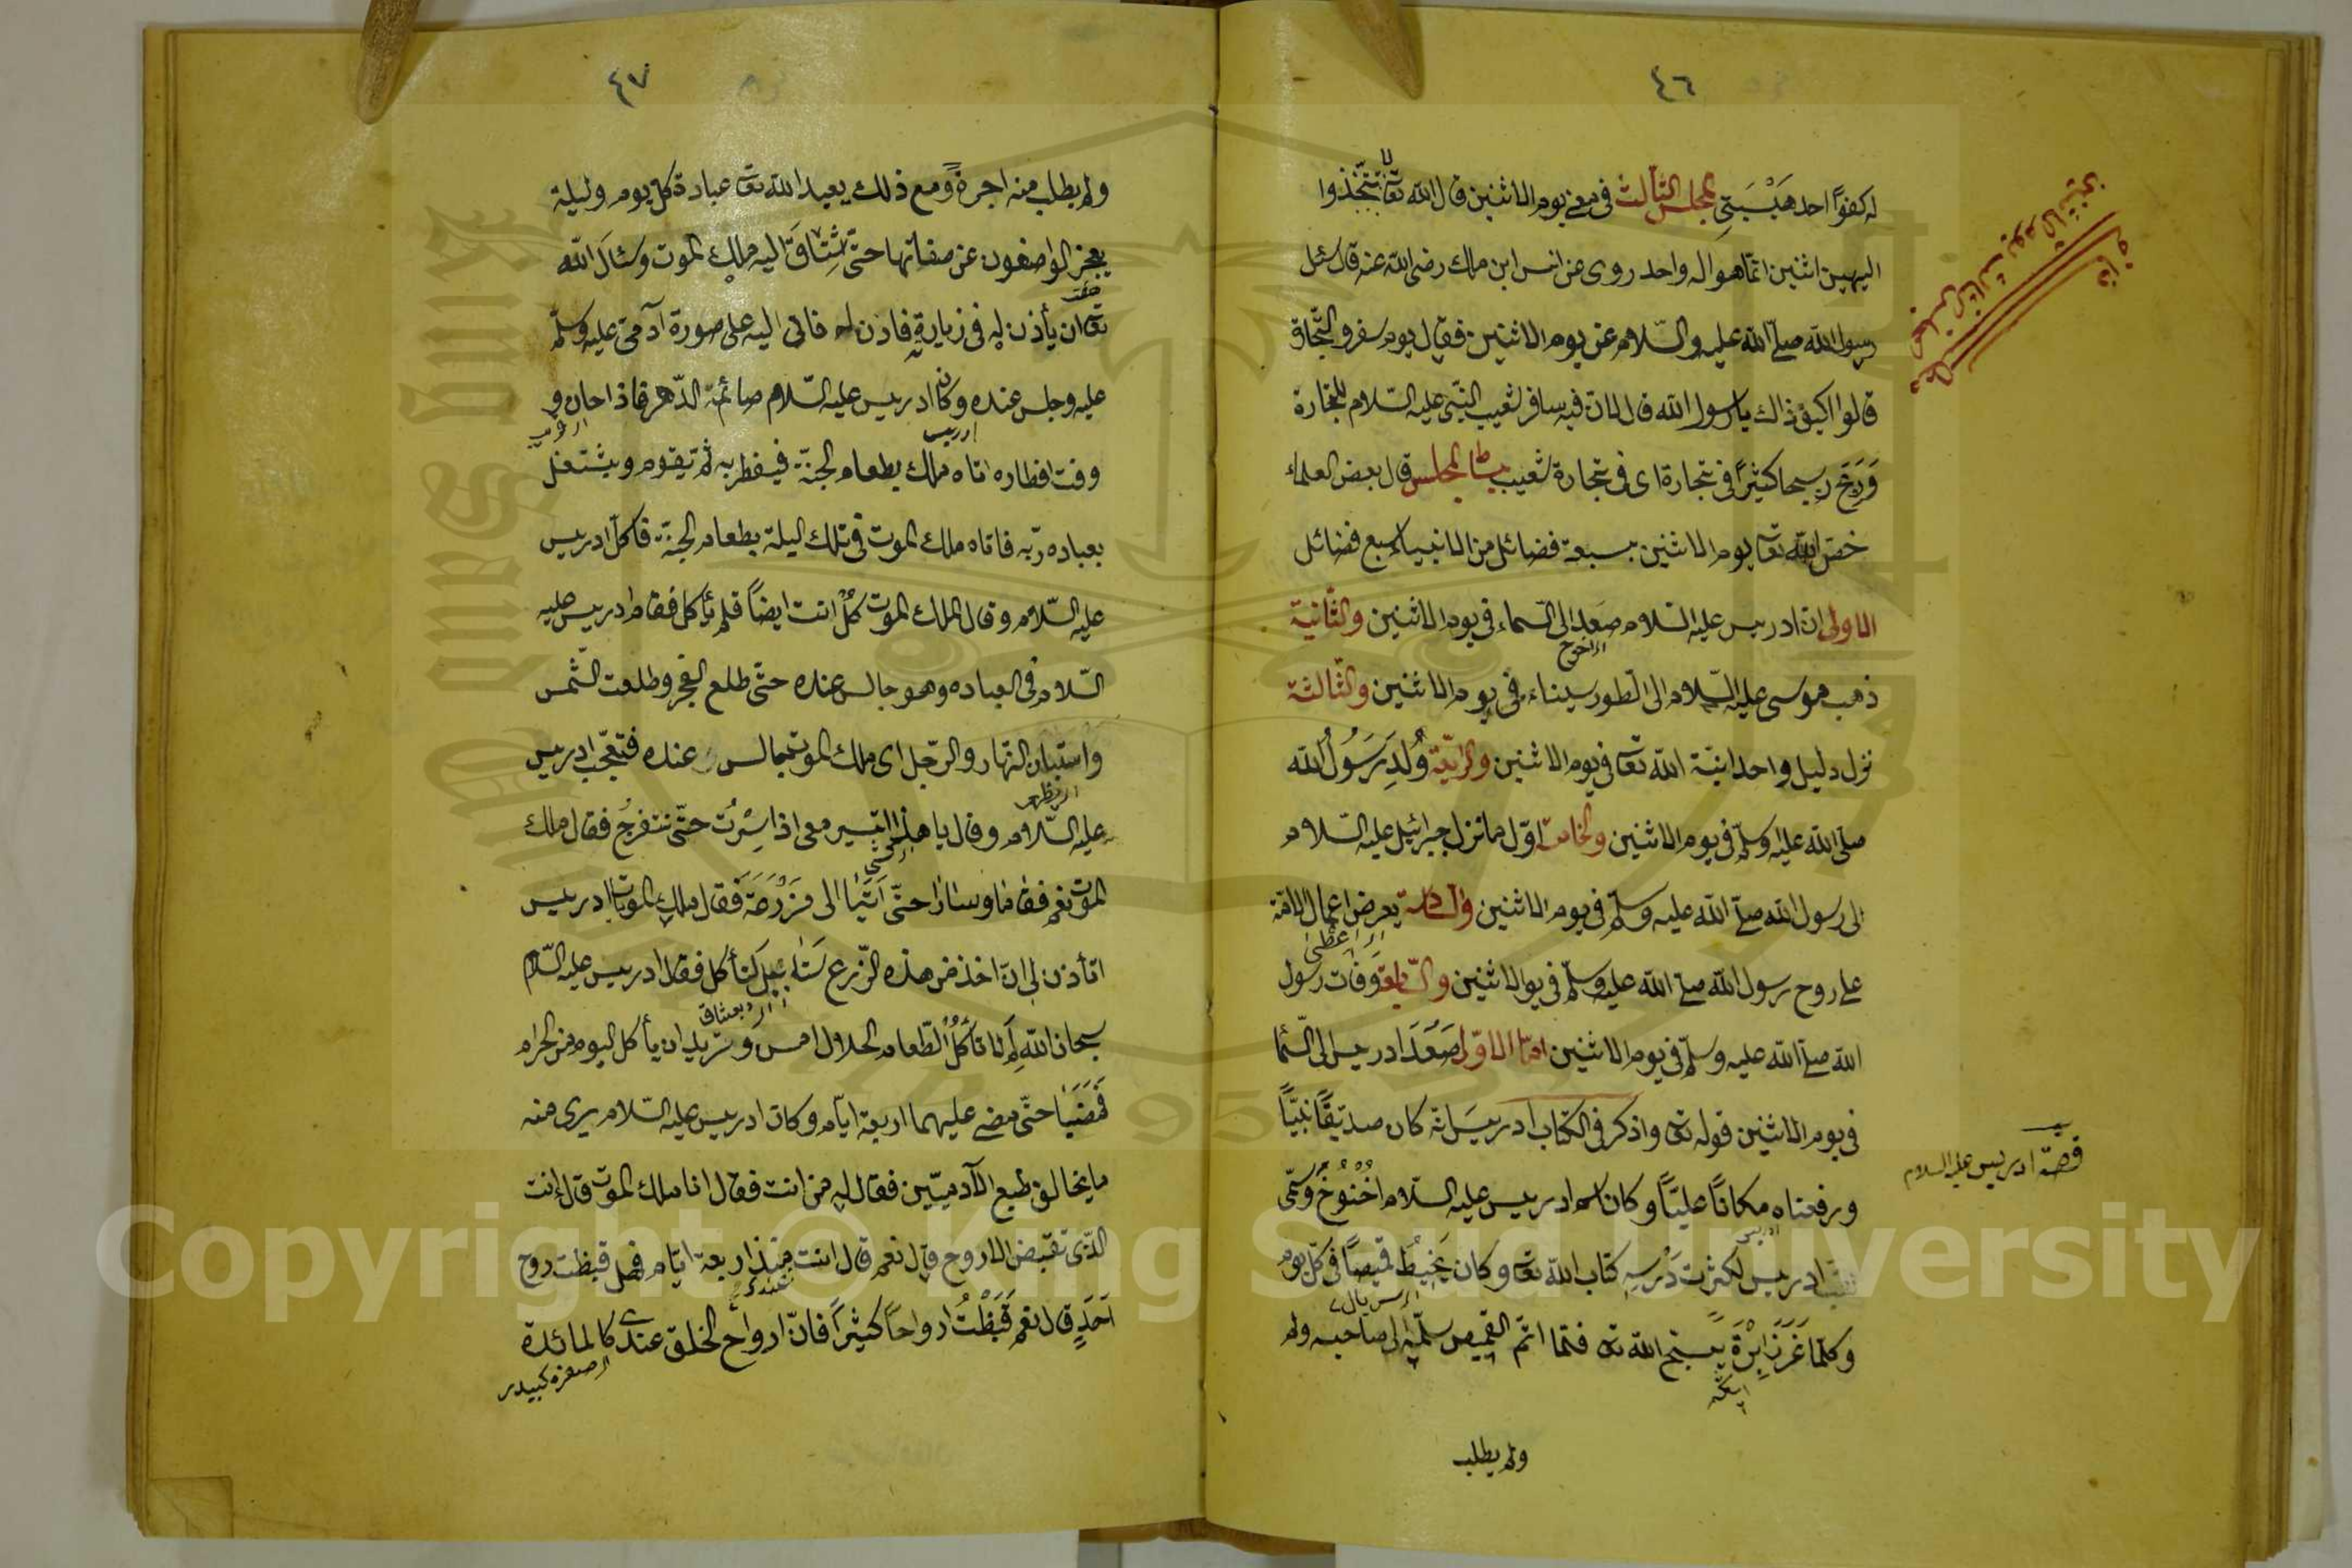 ٤٦
له كفوًا احد هَيْسَبَتِى المجلس الثّالث فى معنى يوم الاثنين قال الله تعالى لا تتّخذوا
الهين اثنين انّما هو اله واحد روى عن انس ابن مالك رضى الله عنه قال سئل
رسول الله صلّى الله عليه والسّلام عن يوم الاثنين فقال يوم سفر والتّجاة
قالوا كيف ذاك يا رسول الله قال لان فيه سافر شعيب النّبى عليه السّلام للتجارة
وَرَبَحَ ربحا كثيرًا فى تجارة اى فى تجارة شعيب بساط المجلس قال بعض العلماء
خصّ الله تعالى يوم الاثنين بسبعة فضائل من الانبياء سبع فضائل
الاولى ان ادريس عليه السّلام صَعِدَ الى السّماء فى يوم الاثنين والثّانية
ذهب موسى عليه السّلام الى الطور سيناء فى يوم الاثنين والثّالثة
نزل دليل واحدانيّة الله تعالى فى يوم الاثنين والرّابعة وُلِدَ رَسُولُ الله
صلّى الله عليه وسلّم فى يوم الاثنين والخامسة اوّل ما نزل جبرائيل عليه السّلام
الى رسول الله صلّى الله عليه وسلّم فى يوم الاثنين والسّادسة يعرض اعمال الامّة
على روح رسول الله صلّى الله عليه وسلّم فى يو الاثنين والسّابعة وَفَات رسول
الله صلّى الله عليه وسلّم فى يوم الاثنين امّا الاوّل صَعَدَ ادريس الى السّما
فى يوم الاثنين قوله تعالى واذكر فى الكتاب ادريس انّه كان صدّيقًا نبيًّا
قصّة ادريس عليه السلام
ورفعناه مكانًا عليًّا وكان اسم ادريس عليه السّلام اُخْنُوخُ وسُمّى
ادريس لكثرت دَرْسِهِ كتاب الله تعالى وكان يَخِيطُ قميصًا فى كلّ يوم
وكلّما غَرَزَ اِبْرَةً يسبّح الله تعالى فلمّا اتمّ القميص سلّمه الى صاحبه ولم
ولم يطلب
٤٧
ولم يطلب منه اجرةً ومع ذلك يعبد الله تعالى عبادة كلّ يوم وليلة
يعجز الواصفون عن صفاتها حتّى اشْتَاقَ اليه ملك الموت وسَئَالَ الله
تعالى ان يأذن له فى زيارته فاذن له فاتى اليه على صورة آدمىّ عليه وسلّم
عليه وجلس عنده وكان ادريس عليه السّلام صائم الدّهر فاذا حان و
وقت افطاره اتاه ملك بطعام الجنّة فيفطر به ثم يقوم ويشتغل
بعباده ربّه فاتاه ملك الموت فى تلك ليلة بطعام الجنّة فاكل ادريس
عليه السّلام وقال لملك الموت كُلْ انت ايضاً فلم يأكل فقام ادريس عليه
السّلام فى العباده وهو جالس عنده حتّى طلع الفجر وطلعت الشّمس
واستبان النّهار والرّجل اى ملك الموت جالس عنده فتعجّب ادريس
عليه السّلام وقال يا هذا اتسير معى اذا سِرْتُ حتّى نتفرج فقال ملك
الموت نعم فقاما وسارا حتّى اَتَيَا الى مَزْرَعَة فقال ملك الموت يا ادريس
اتأذن لى ان اخذ من هذه الزّرع سَنَابِيل كنأكل فقال ادريس عليه السّلام
سبحان الله لِمَ لا تأكُلُ الطّعام الحلال امس وتريد ان يأكل اليوم من الحرام
فَمَضَيَا حتّى مضى عليهما اربعة ايّام وكان ادريس عليه السّلام يرى منه
ما يخالف طبع الآدميّين فقال له من انت فقال انا ملك الموت قال انت
الذى تقبض الاروح قال نعم قال انت منذ اربعة ايّام فهل قبظت روح
اَحَدٍ قال نعم قَبَظْتُ ارواحاً كثيرًا فانّ ارواح الخلق عندى كالمائدة
Copyright © King Saud University